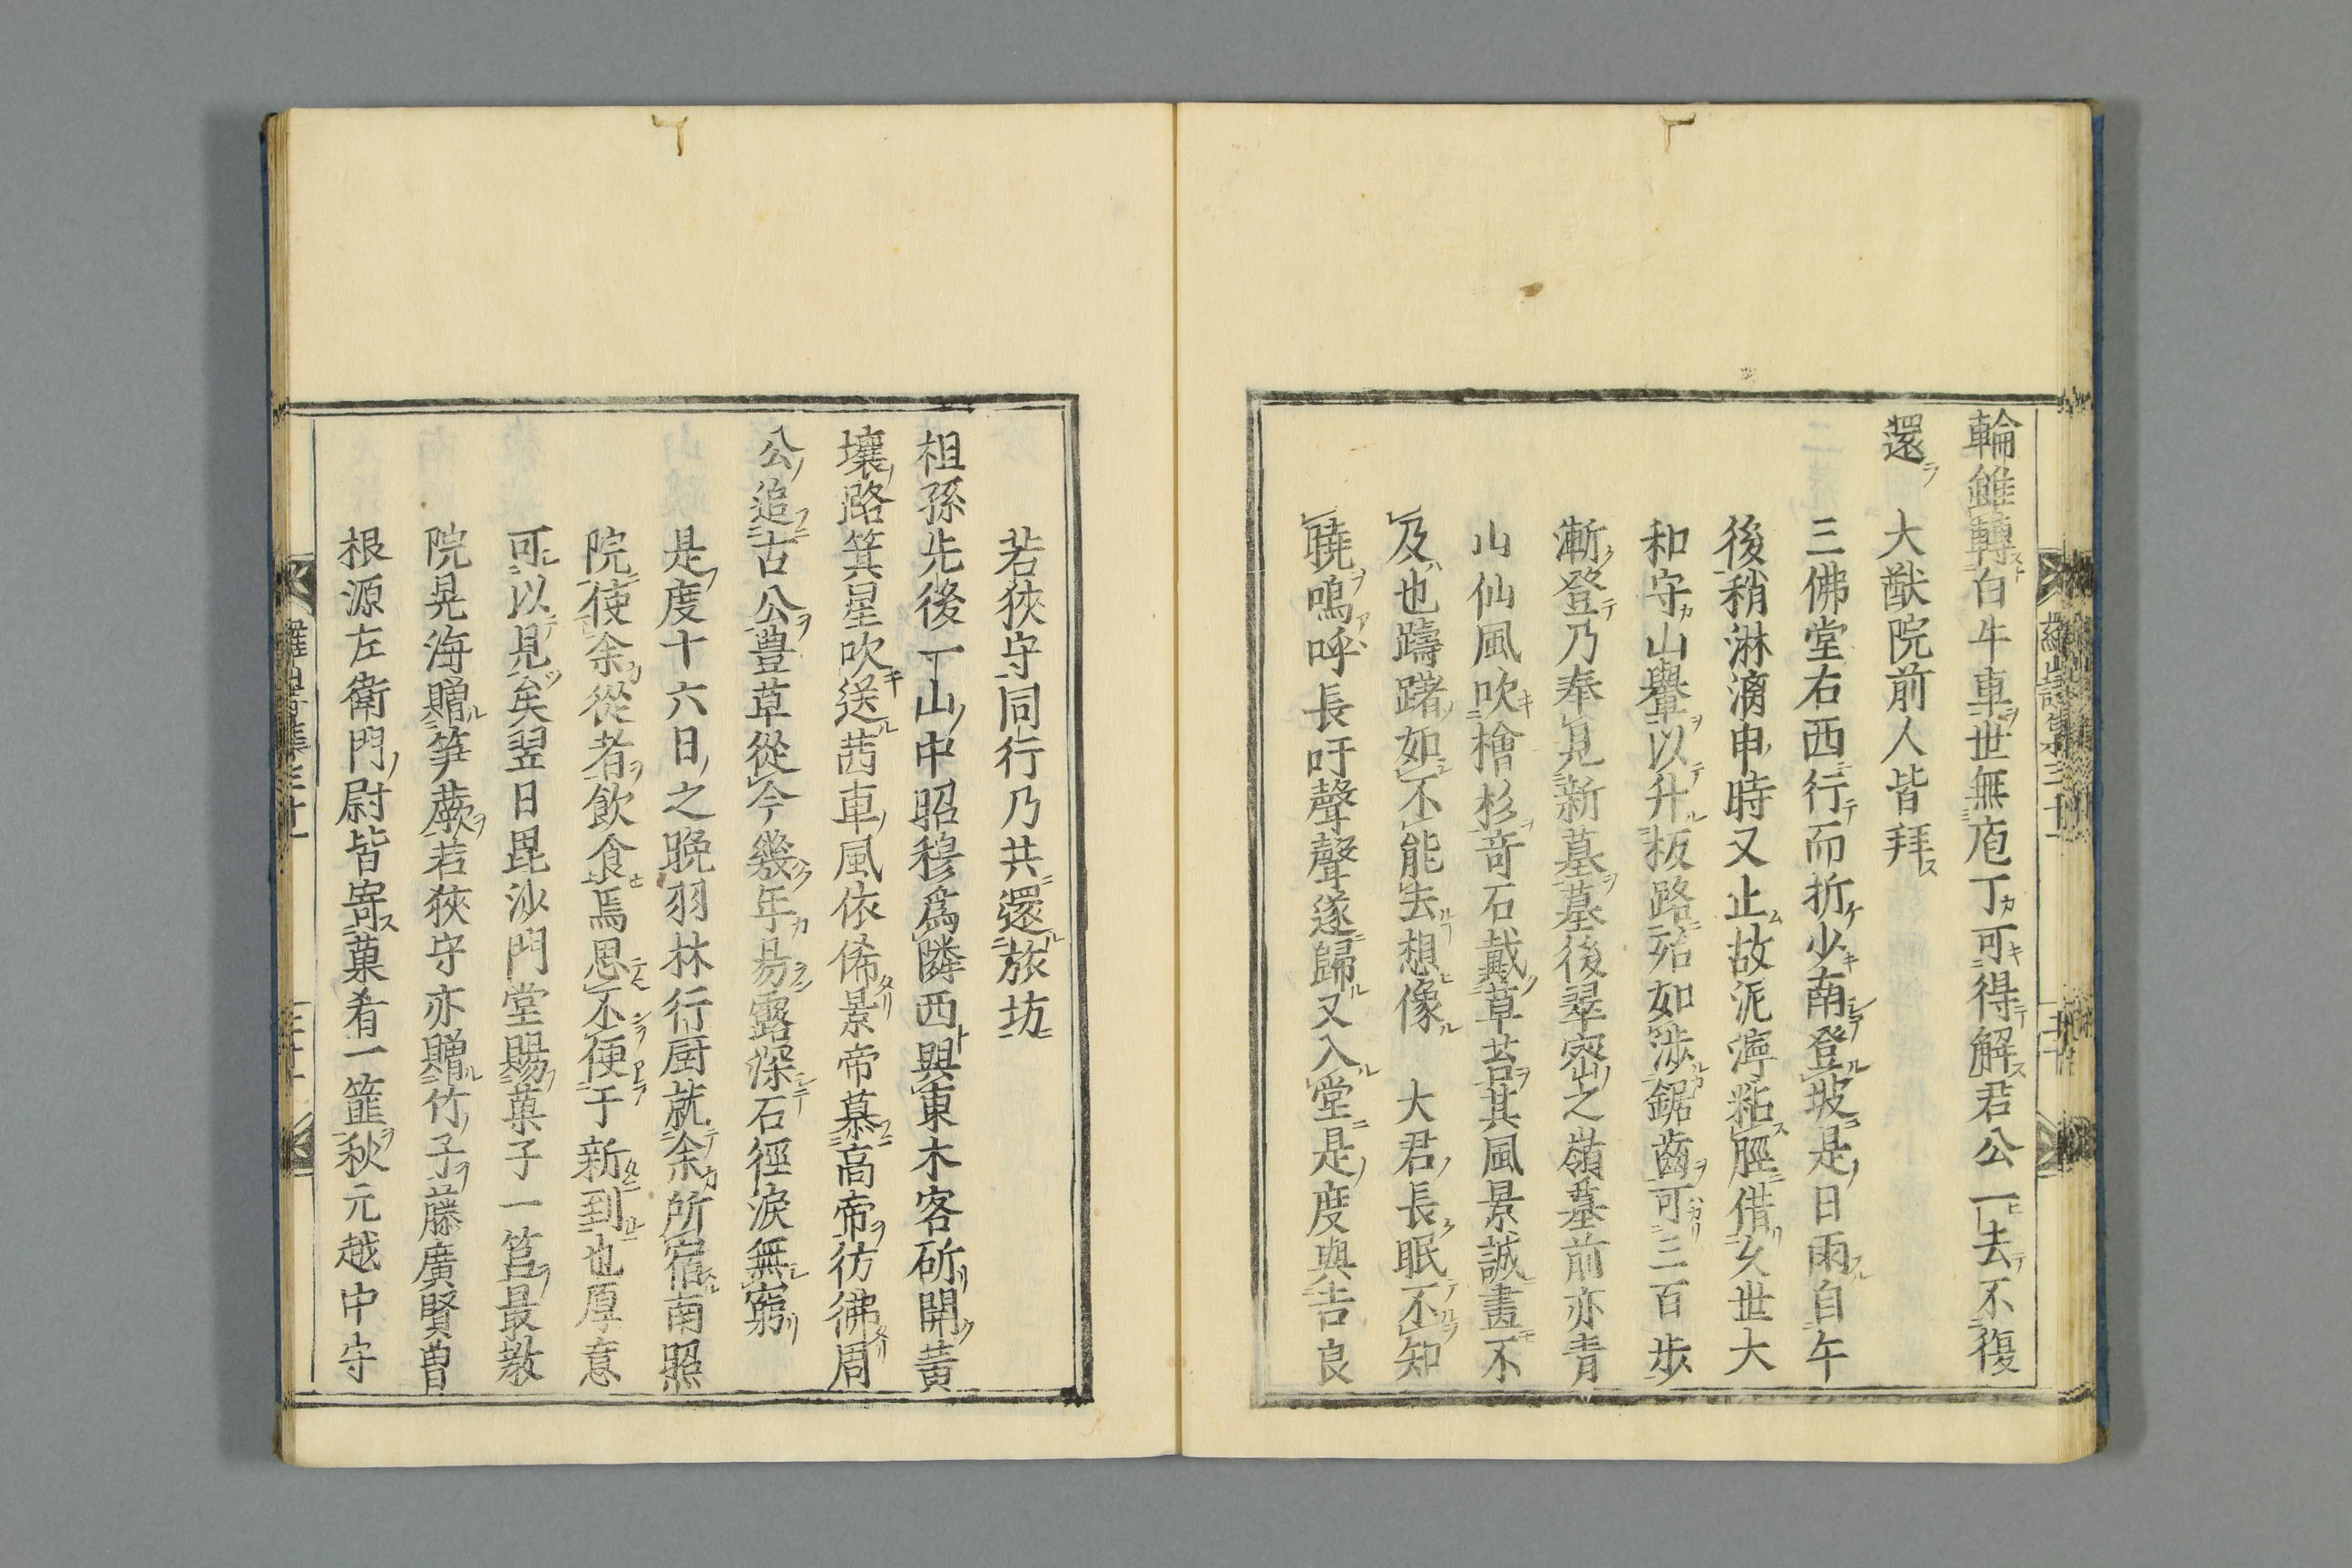 輪雖轉白牛車世無庖丁可得解君公一去不復
還　大猷院前人皆拜
三佛堂右西行而折少南登坡是日雨自午
後稍淋漓申時又止故泥濘粘脛借攵世大
和守山轝以升坂路始如涉鋸齒可三百步
漸登乃奉見新墓墓後翠密之嶺墓前亦青
山仙風吹檜杉奇石戴草苔其風景誠畫不
及也躊躇如不能去想像　大君長眠不知
曉嗚呼長吁聲聲遂歸又入堂是度與吉良
若狹守同行乃共還旅坊
祖孫先後一山中昭穆爲隣西與東木客斫開黃
壤路箕星吹送茜車風依俙景帝慕高帝彷彿周
公追古公豊草從今幾年易露深石徑淚無窮
是度十六日之晩羽林行厨就余所宿南照
院使余從者飲食焉思不便于新到也厚意
可以見矣翌日毘沙門堂賜菓子一筥最教
院晃海贈笋蕨若狹守亦贈竹子藤廣賢曽
根源左衛門尉皆寄菓肴一篚秋元越中守